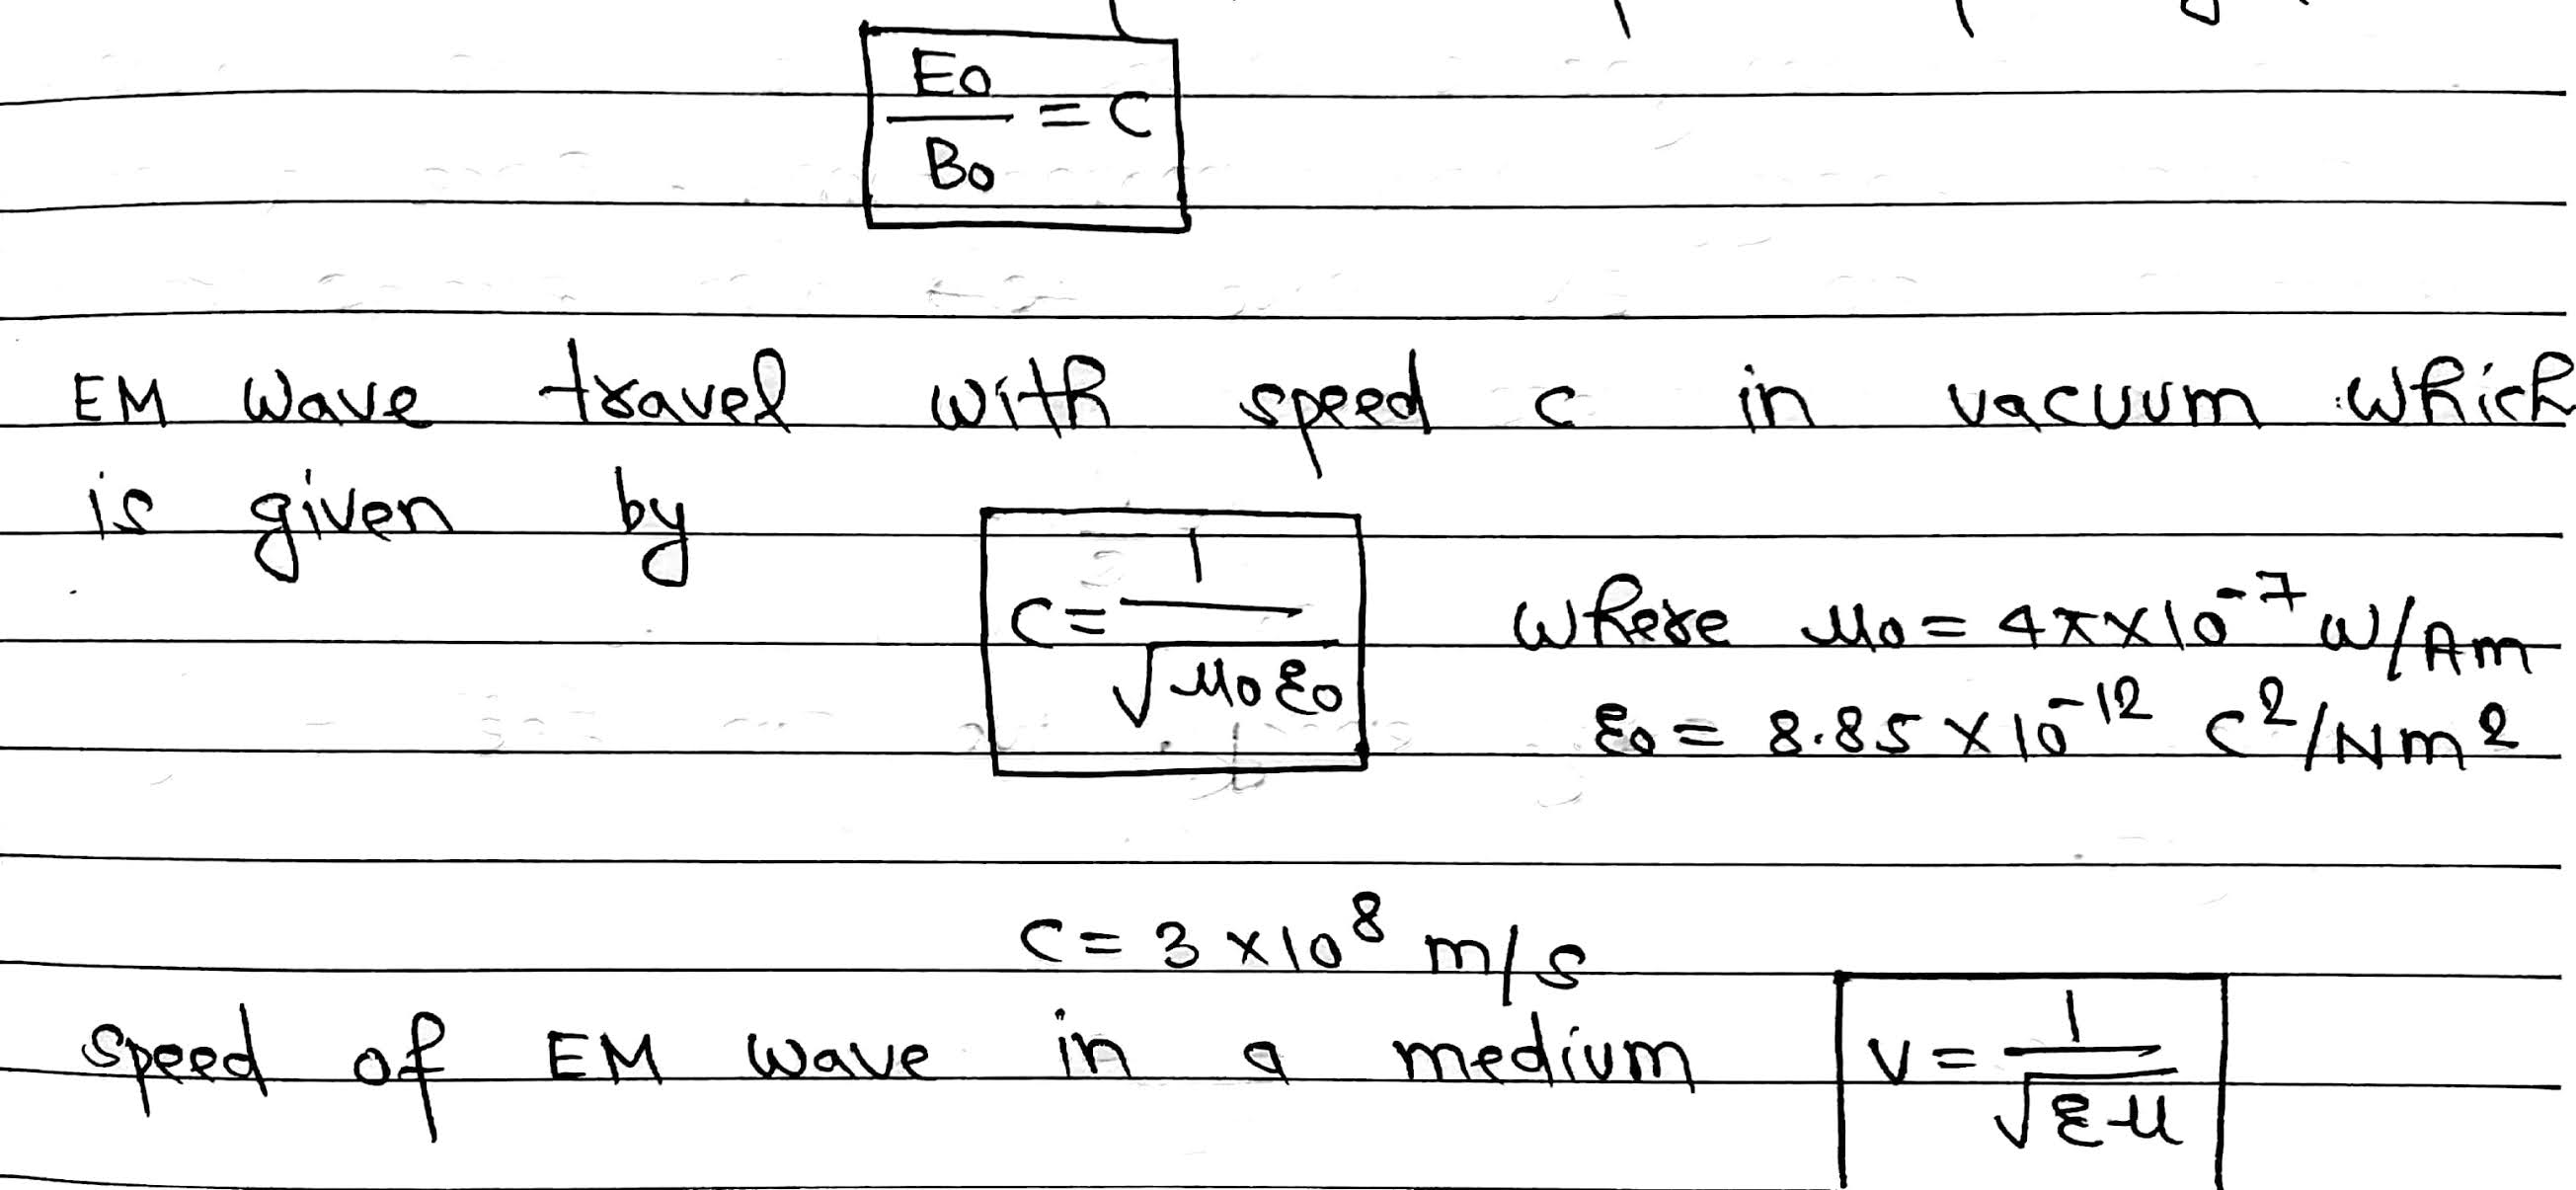 E0/B0 = C
EM wave travel with speed c in vacuum which
is given by
C = 1/√μ0ε0 where μ0 = 4π×10⁻⁷ W/Am
ε0 = 8.85 × 10⁻¹² C²/Nm²
C = 3 × 10⁸ m/s
speed of EM wave in a medium V = 1/√εμ